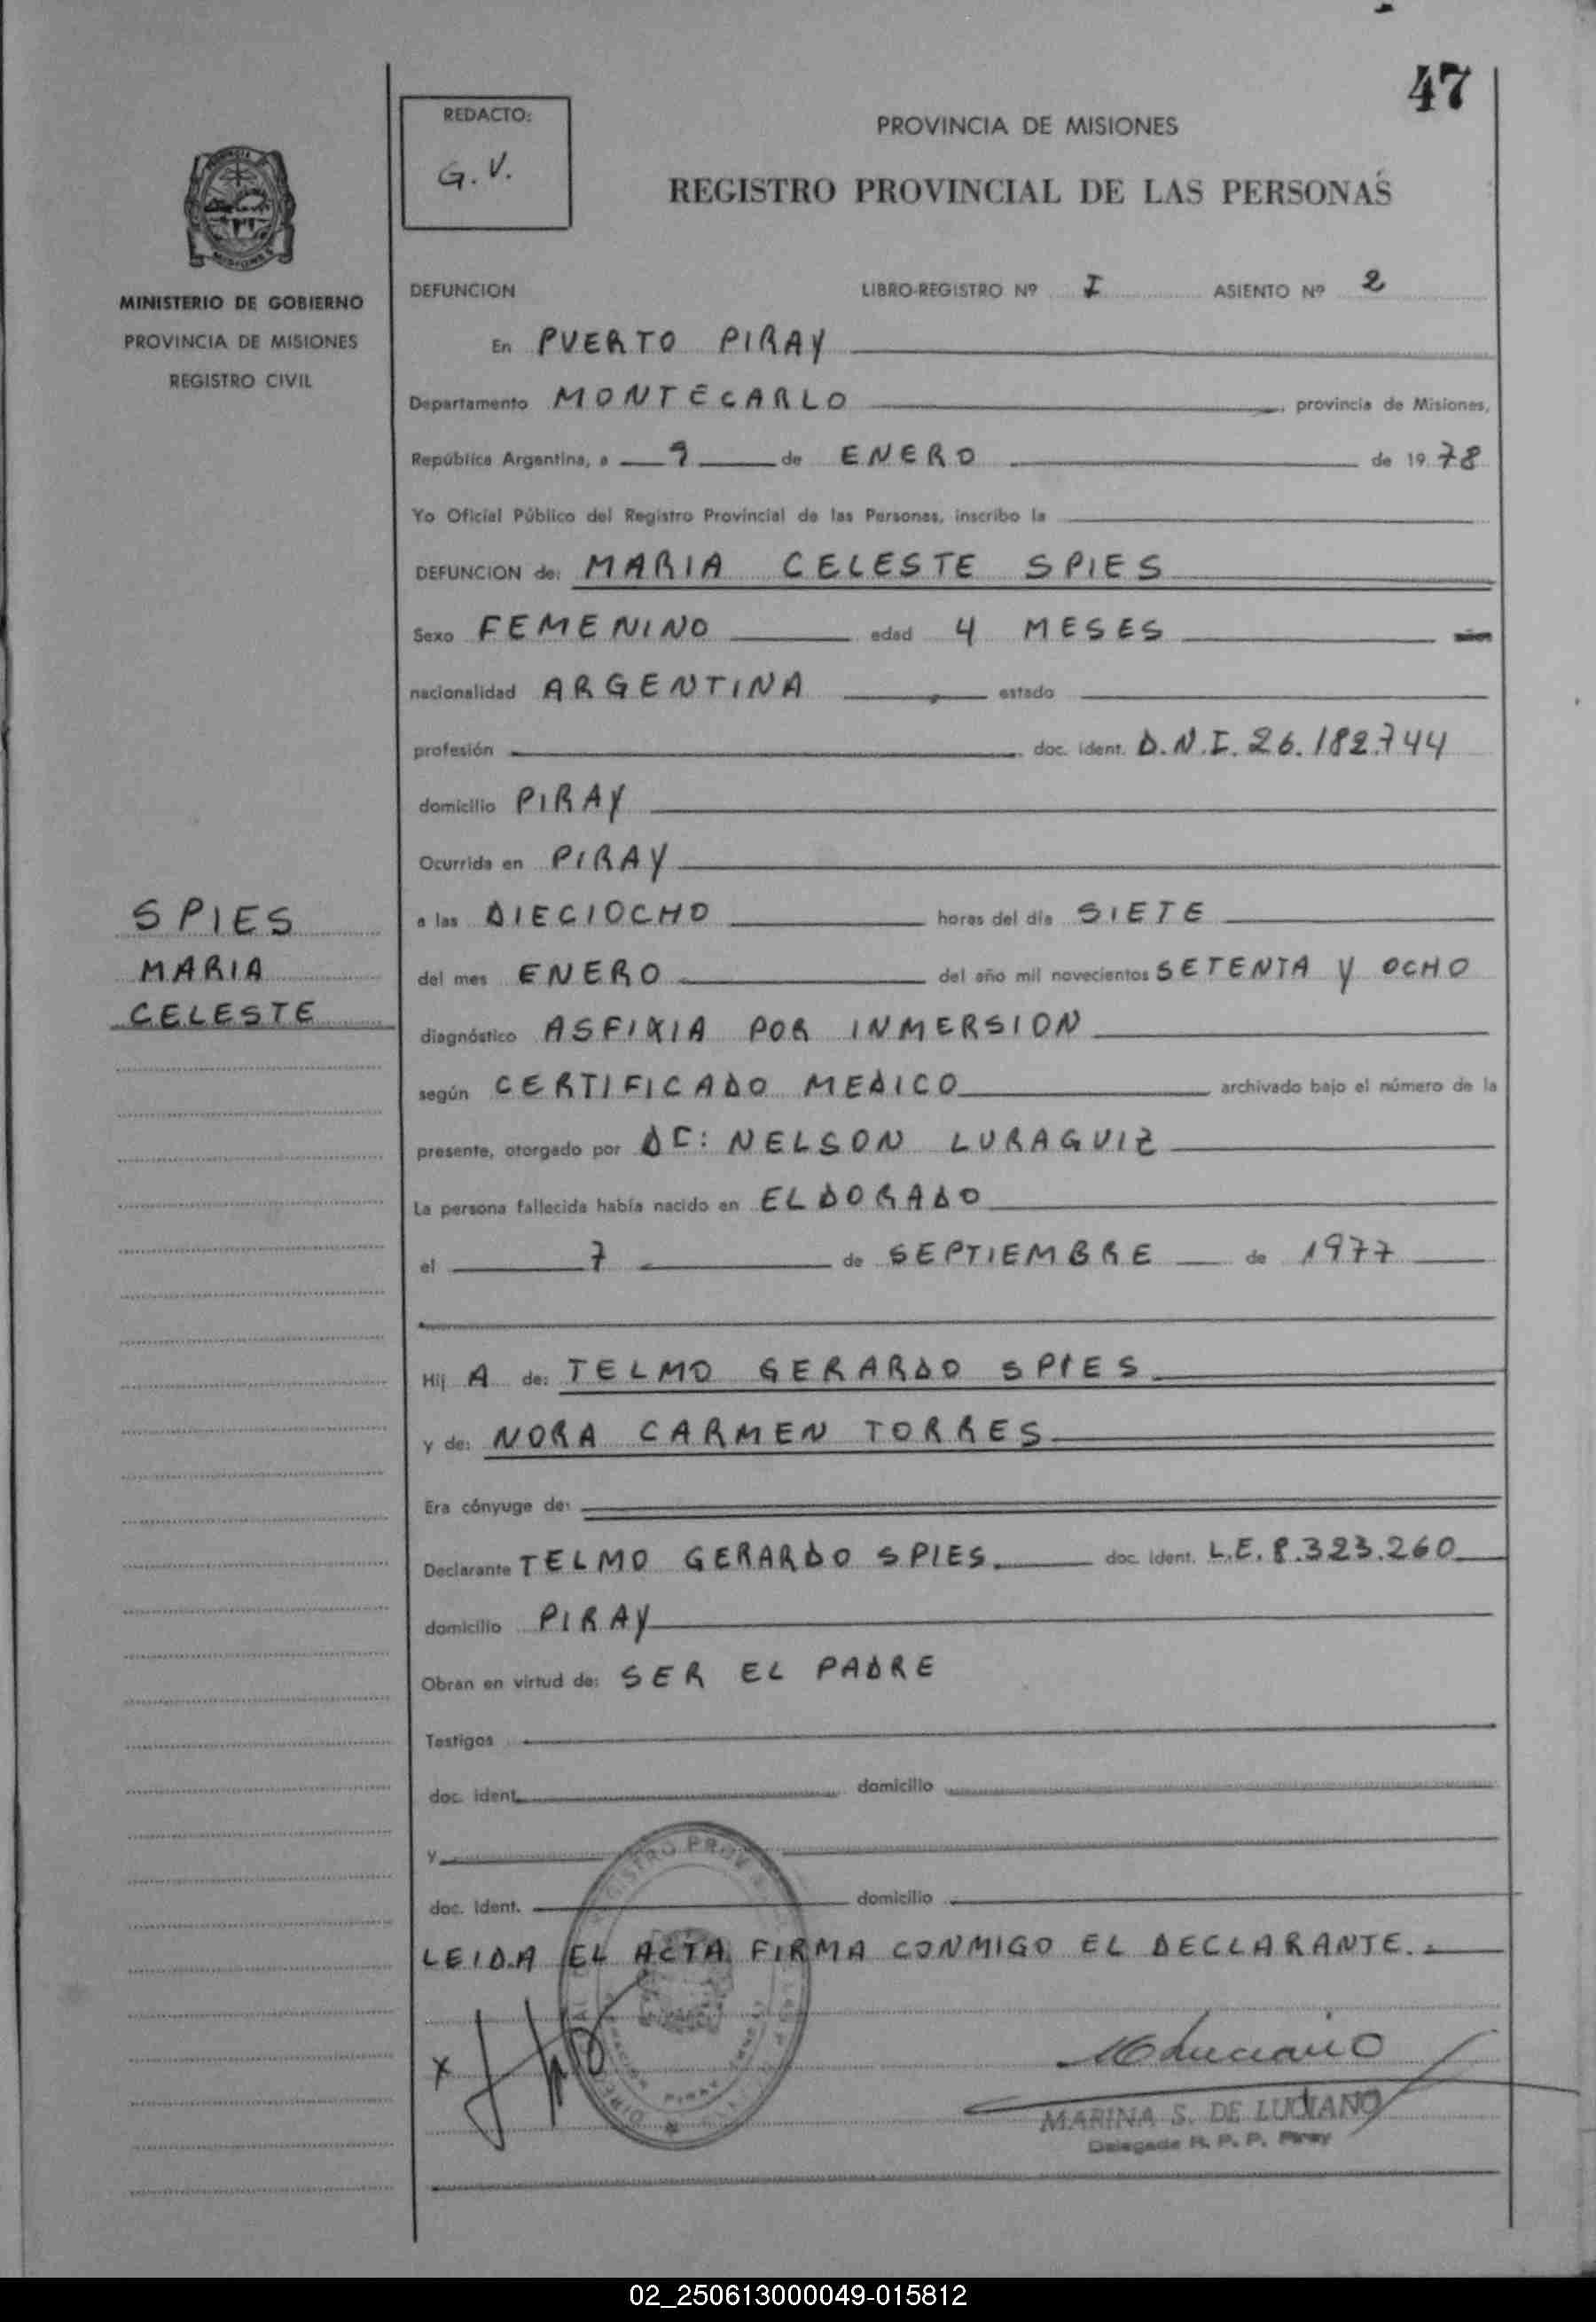 47
REDACTO:
G.V.
PROVINCIA DE MISIONES
REGISTRO PROVINCIAL DE LAS PERSONAS
MINISTERIO DE GOBIERNO
PROVINCIA DE MISIONES
REGISTRO CIVIL
DEFUNCION LIBRO-REGISTRO Nº I ASIENTO Nº 2
En PUERTO PIRAY
Departamento MONTECARLO, provincia de Misiones,
República Argentina, a 9 de ENERO de 1978
Yo Oficial Público del Registro Provincial de las Personas, inscribo la
DEFUNCION de: MARIA CELESTE SPIES
Sexo FEMENINO edad 4 MESES
nacionalidad ARGENTINA, estado
profesión doc. ident. D.N.I. 26.182.744
domicilio PIRAY
Ocurrida en PIRAY
SPIES
MARIA
CELESTE
a las DIECIOCHO horas del día SIETE
del mes ENERO del año mil novecientos SETENTA Y OCHO
diagnóstico ASFIXIA POR INMERSION
según CERTIFICADO MEDICO archivado bajo el número de la
presente, otorgado por Dr: NELSON LURAGUIZ
La persona fallecida había nacido en ELDORADO
el 7 de SEPTIEMBRE de 1977
Hij A de: TELMO GERARDO SPIES
y de: NORA CARMEN TORRES
Era cónyuge de:
Declarante TELMO GERARDO SPIES. doc. ident. L.E. 8.323.260
domicilio PIRAY
Obran en virtud de: SER EL PADRE
Testigos
doc. ident. domicilio
y
doc. ident. domicilio
LEIDA EL ACTA FIRMA CONMIGO EL DECLARANTE.-
x
MARINA S. DE LUCIANO
Delegada R. P. P. Piray
02_250613000049-015812